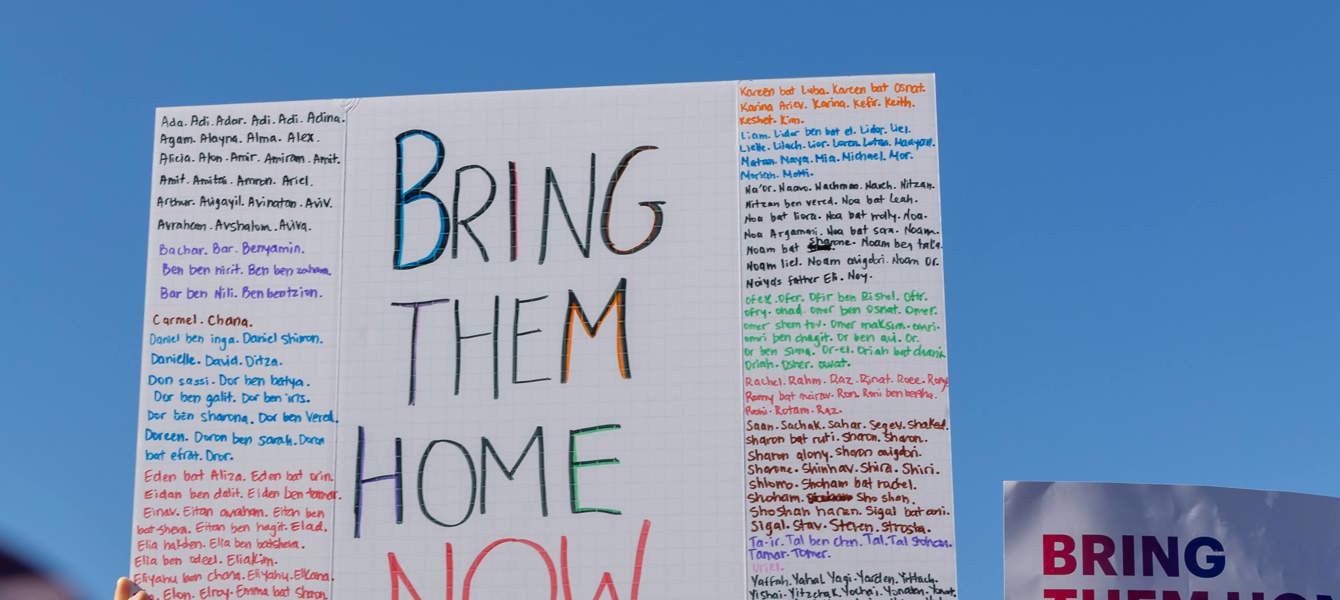 Ada. Adi. Ador. Adi. Adi. Adina.
Agam. Alayna. Alma. Alex.
Alicia. Alon. Amir. Amiram. Amit.
Amit. Amitai. Amnon. Ariel.
Arthur. Avigayil. Avinatan. Aviv.
Avraham. Avshalom. Aviva.
Bachar. Bar. Benyamin.
Ben ben nirit. Ben ben
Bar ben Nili. Ben bentzion.
Carmel. Chana.
Daniel ben inga. Daniel Shimon.
Danielle. David. Ditza.
Don sassi. Dor ben batya.
Dor ben galit. Dor ben iris.
Dor ben sharona. Dor ben Vered.
Doreen. Doron ben sarah. Doron
bat efrat. Dror.
Eden bat Aliza. Eden bat
Eidan ben dalit. Eiden ben tamar.
Einav. Eitan avraham. Eitan ben
bat-sheva. Eitan ben hagit. Elad.
Elia ben batsheva.
Ella ben adeel. Eliakim.
Eliyahu ben chana. Eliyahu. Elkana.
Elon. Elroy. Emma bat Sharon
BRING
THEM
HOME
NOW
Kareen bat Luba. Kareen bat Osnat.
Karina Ariev. Karina. Kefir. Keith.
Keshet. Kim.
Liam. Lidor ben bat el. Lidor. Liel.
Lielle. Lilach. Lior. Loren. Lotan. Maayan.
Matan. Maya. Mia. Michael. Mor.
Moriah. Motti.
Na'or. Naava. Nachman. Naveh. Nitzan.
Nitzan ben vered. Noa bat Leah.
Noa bat liora. Noa bat molly. Noa.
Noa Argamani. Noa bat sara. Noam.
Noam bat sharone. Noam ben
Noam liel. Noam avigdori. Noam Or.
Naiya's father Eli. Noy.
Ofek. Ofer. Ofir ben Rishel. Ofir.
Ofry. ohad. omer ben Osnat. Omer.
omer shem tov. Omer maksim. omri.
omri ben chagit. Or ben avi. Or.
Or ben Sima. Or-el. Oriah bat
Oriah. Osher.
Rachel. Rahm. Raz. Rinat. Roee. Romy
Romy bat meirav. Ron. Roni ben bertha.
Roni. Rotam. Raz.
Saan. Sachak. Sahar. Segev. Shaked.
Sharon bat ruti. Sharon. Sharon.
Sharon alony. Sharon avigdori.
Sharone. Shinhav. Shira. Shiri.
Shlomo. Shoham bat rachel.
Shoham. Shoshan.
Shoshan haran. Sigal bat
Sigal. Stav. Steven.
Ta-ir. Tal ben chen. Tal. Tal
Tamar. Tomer.
Uriel.
Yaffah. Yahal. Yagi. Yarden. Yiftach.
Yishai. Yitzchak. Yochai. Yonatan.
BRING
THEM HOM